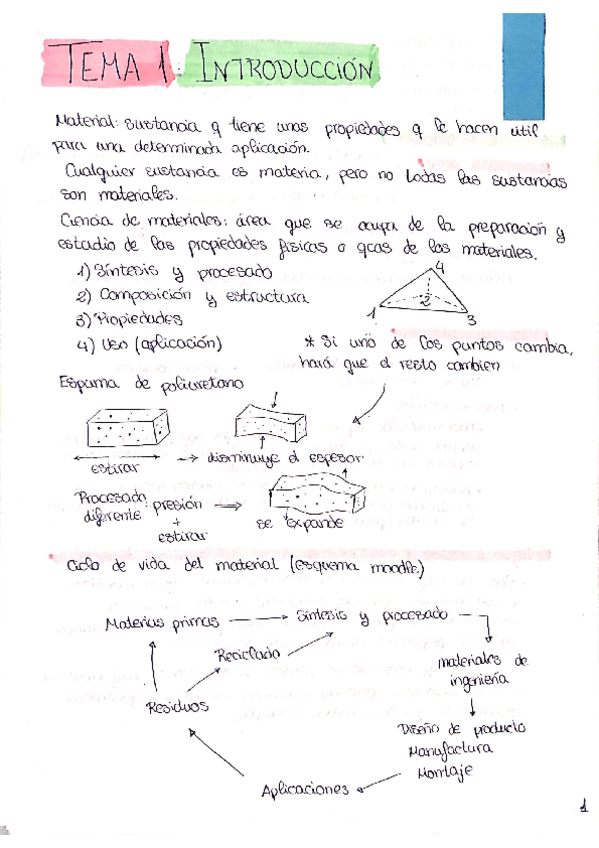 TEMA 1. INTRODUCCIÓN
Material: sustancia q tiene unas propiedades q le hacen útil
para una determinada aplicación.
Cualquier sustancia es materia, pero no todas las sustancias
son materiales.
Ciencia de materiales: área que se ocupa de la preparación y
estudio de las propiedades físicas o qcas de los materiales.
1) Síntesis y procesado
2) Composición y estructura
3) Propiedades
4) Uso (aplicación)
4
2
1
3
* Si uno de los puntos cambia,
hará que el resto cambien
Espuma de poliuretano
estirar
→ disminuye el espesor
Procesado
diferente
: presión
+
estirar
→
se expande
Ciclo de vida del material (esquema moodle.)
Materias primas → Síntesis y procesado
Reciclado
materiales de
ingeniería
Residuos
Diseño de producto
Manufactura
Montaje
Aplicaciones
1